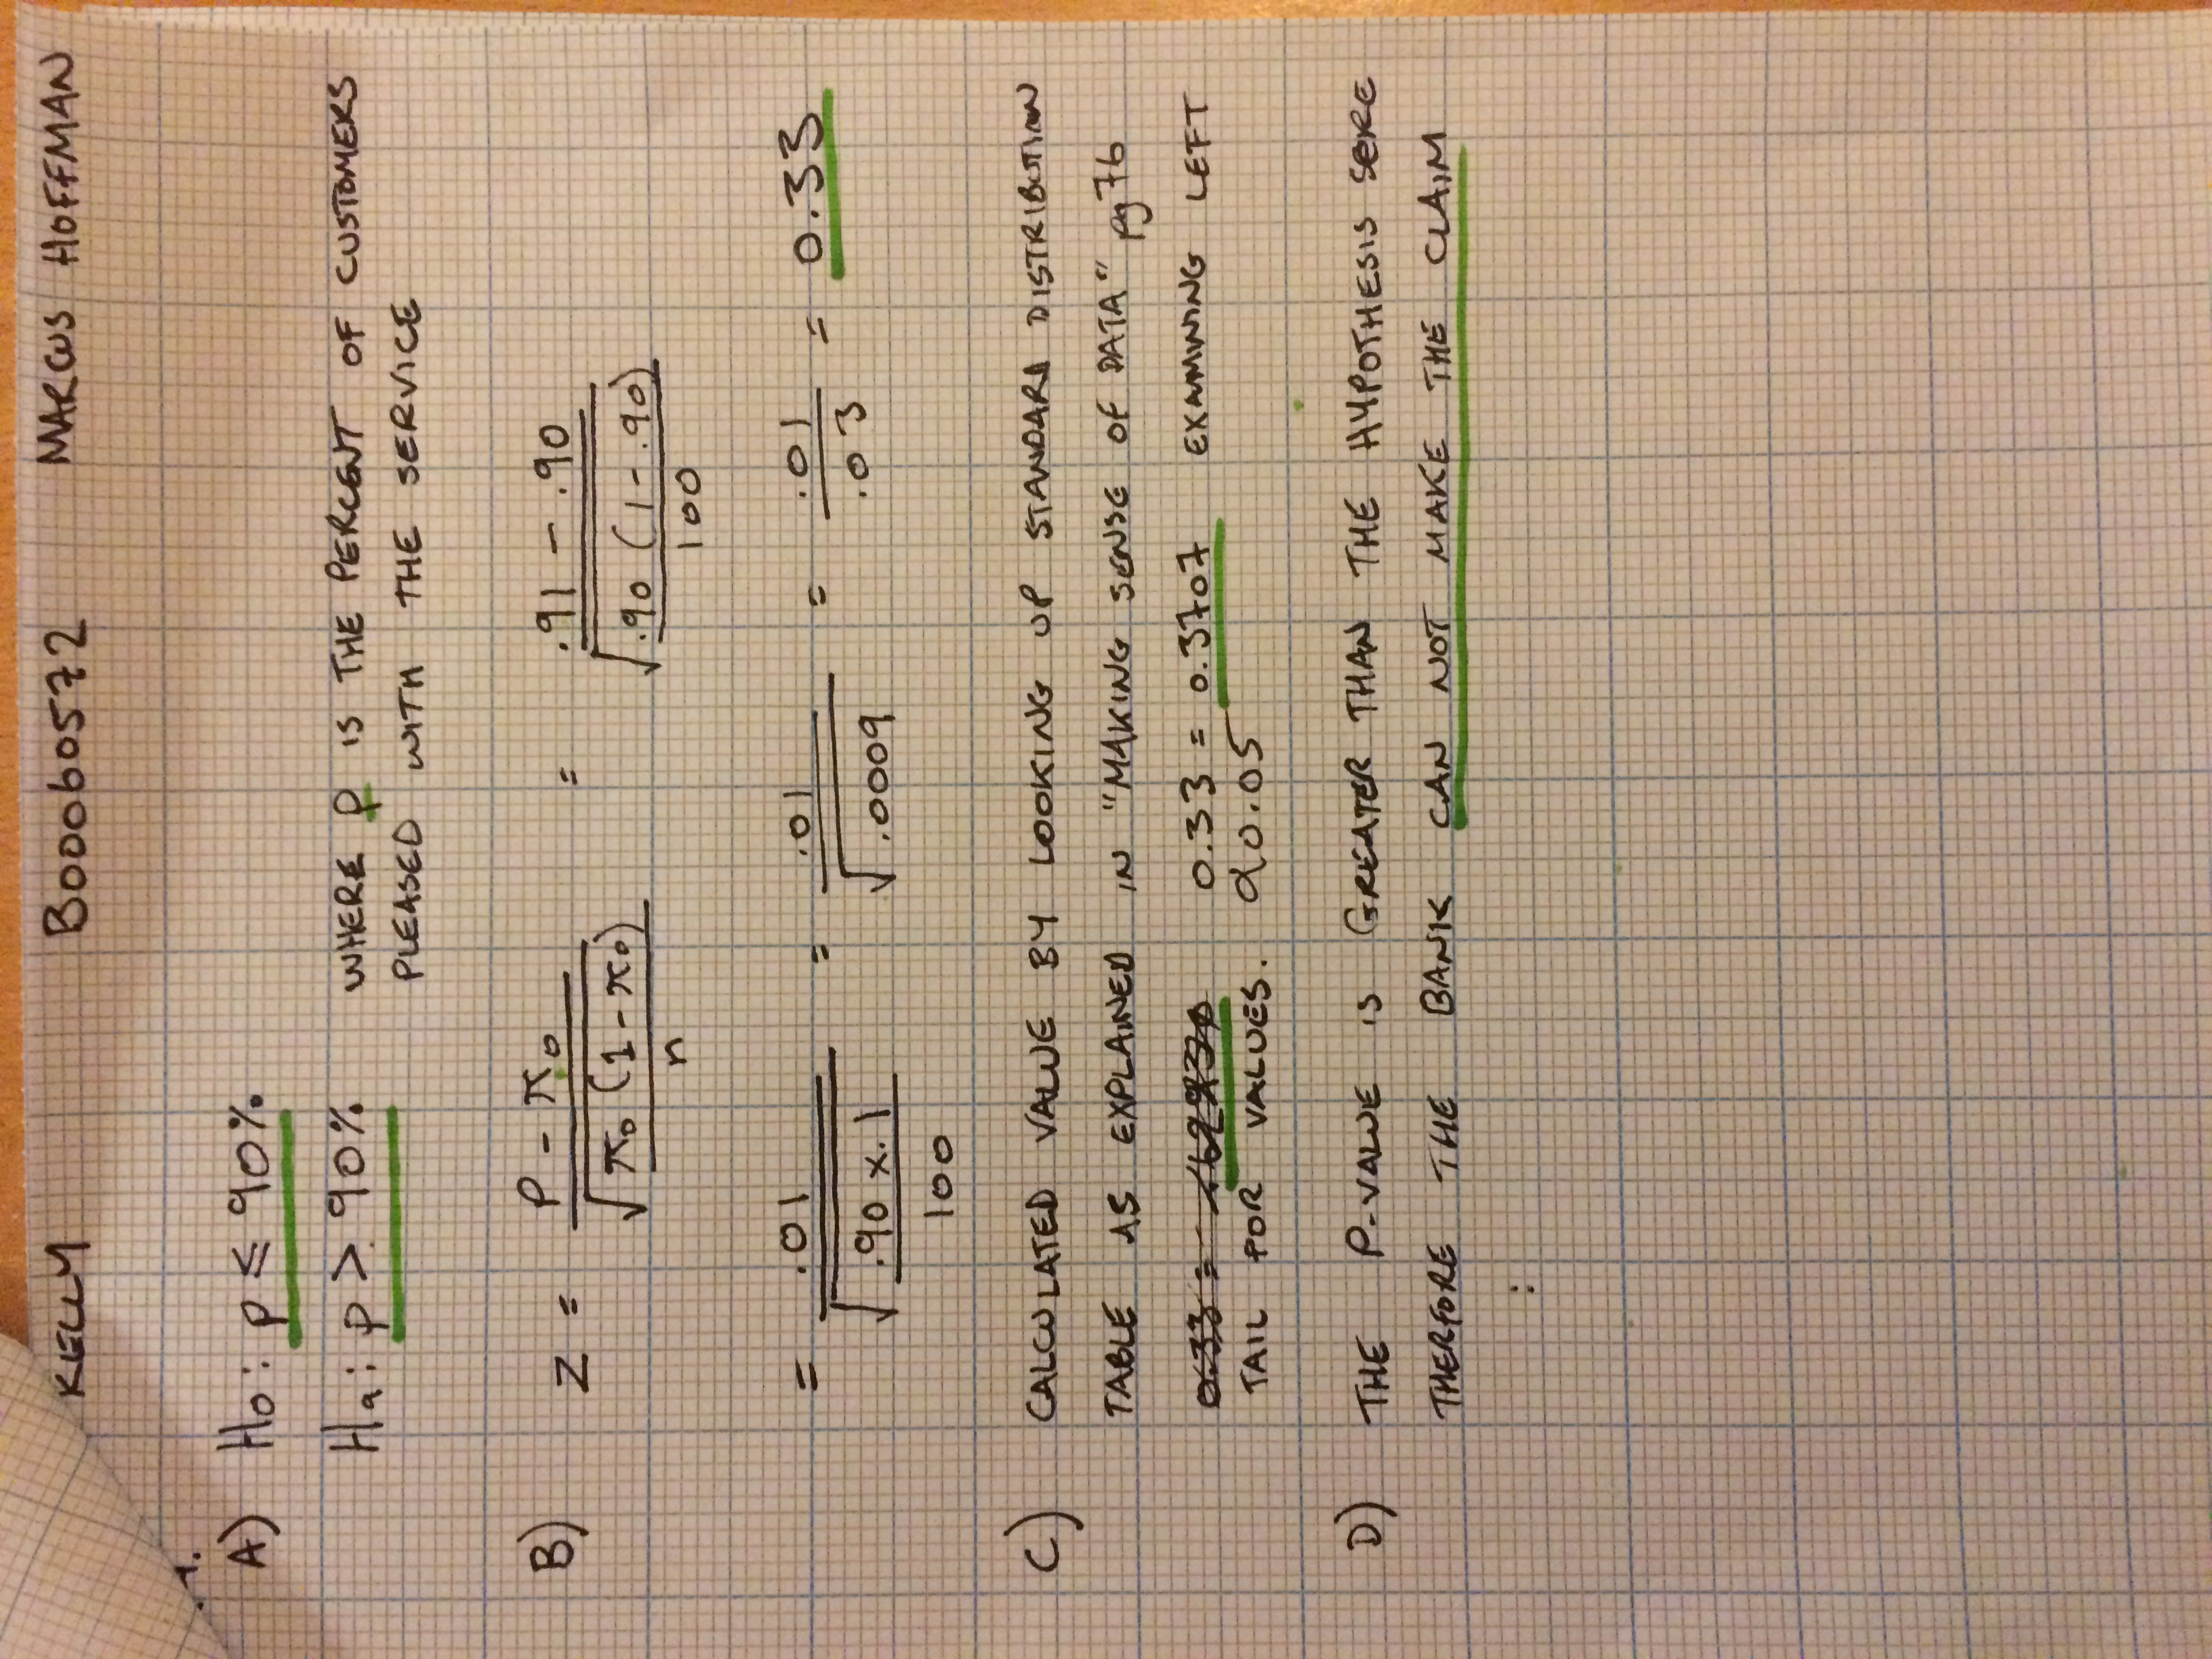 KELLY B00060572 MARCUS HOFFMAN
A) H₀: p ≤ 90%
Hₐ: p > 90% WHERE p IS THE PERCENT OF CUSTOMERS
PLEASED WITH THE SERVICE
B) z = (p - π₀) / √(π₀ (1 - π₀) / n) = (.91 - .90) / √(.90 (1 - .90) / 100)
= .01 / √(.90 x .1 / 100) = .01 / √.0009 = .01 / .03 = 0.33
C) CALCULATED VALUE BY LOOKING UP STANDARD DISTRIBUTION
TABLE AS EXPLAINED IN "MAKING SENSE OF DATA" pg 76
0.33 = 0.33 = 0.3707 EXAMINING LEFT
TAIL FOR VALUES. α0.05
D) THE P-VALUE IS GREATER THAN THE HYPOTHESIS SCORE
THERFORE THE BANK CAN NOT MAKE THE CLAIM
: